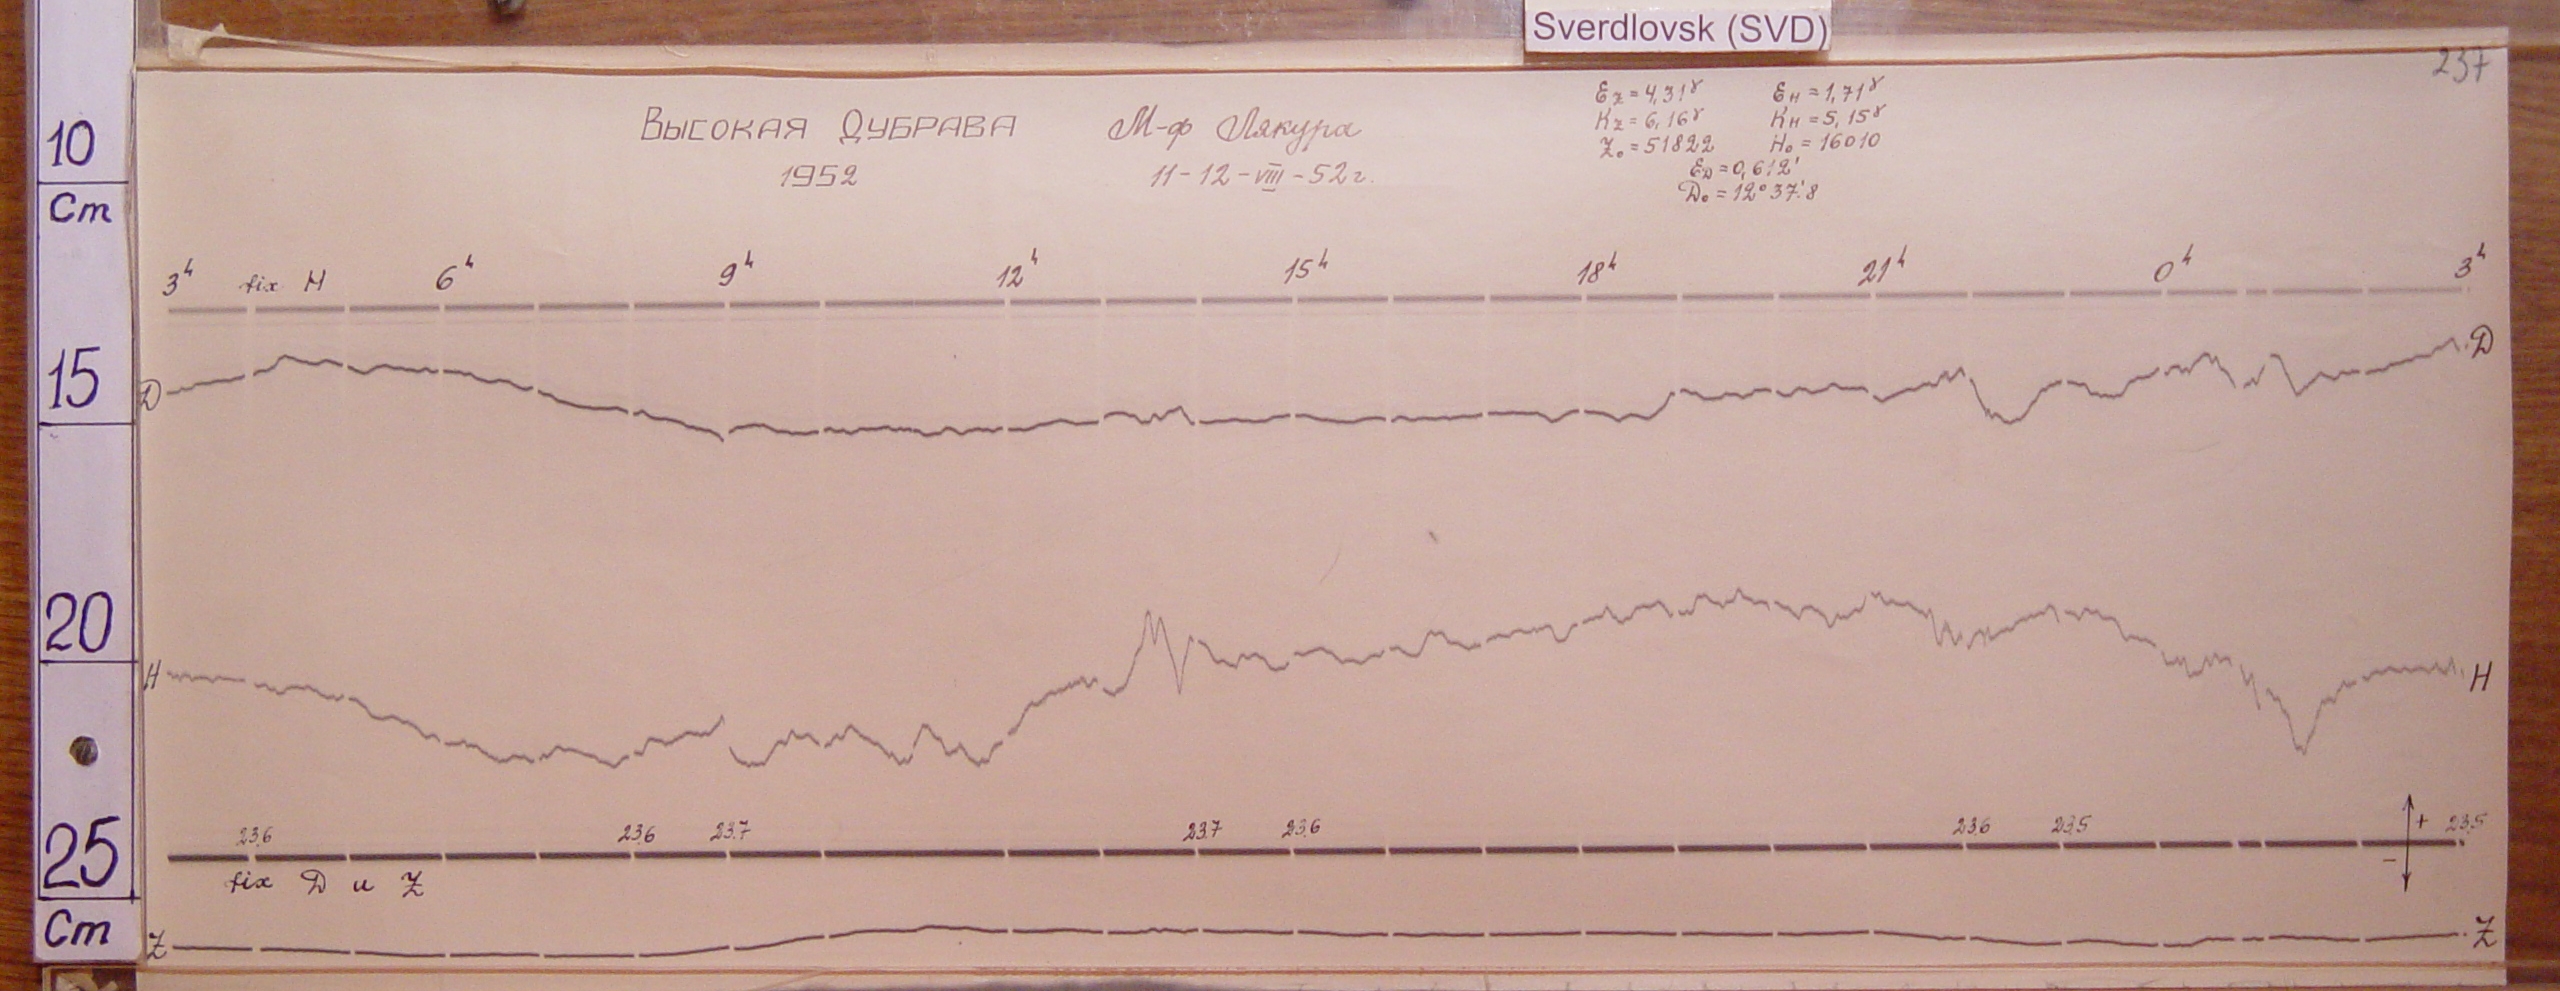 Sverdlovsk (SVD)
237
Высокая Дубрава
1952
М-ф Лякура
11-12-VIII-52г.
Ez = 4,31γ EH = 1,71γ
Kz = 6,16γ KH = 5,15γ
Z₀ = 51822 H₀ = 16010
ED = 0,612'
D₀ = 12°37'.8
10
Cm
15
20
25
Cm
3h fix H 6h 9h 12h 15h 18h 21h 0h 3h
D D
H H
23.6 23.6 23.7 23.7 23.6 23.6 23.5 + 23.5
-
fix D и Z
Z Z